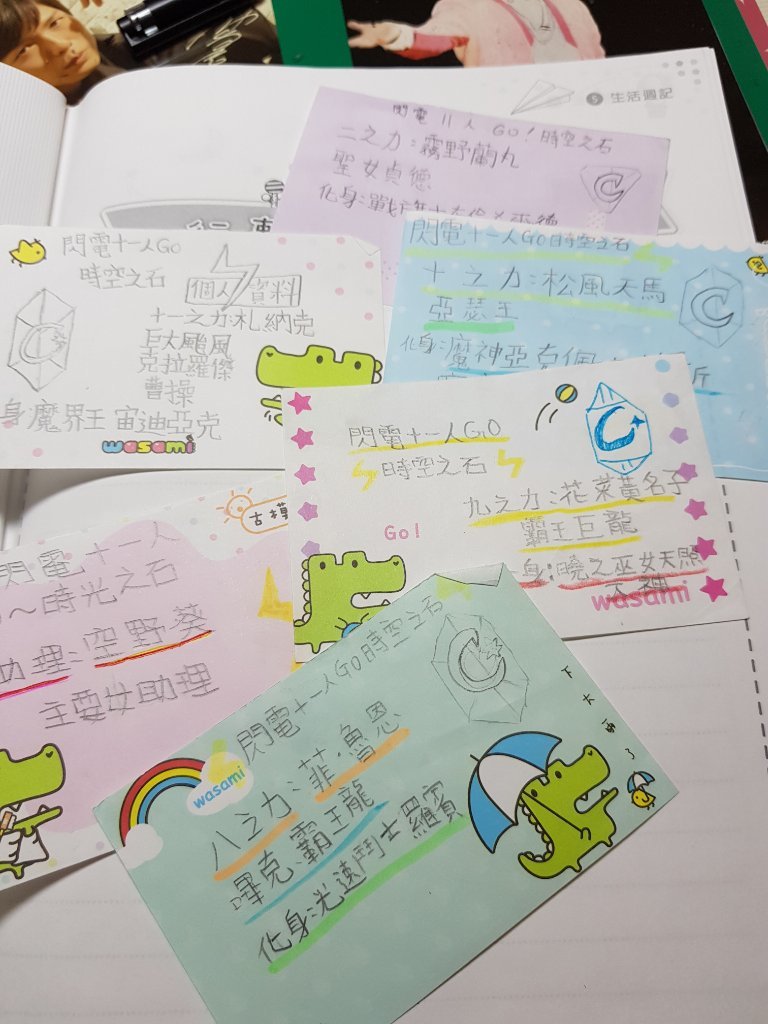 5 生活週記
閃電11人 GO!時空之石
二之力:霧野蘭丸
聖女貞德
化身:戰
閃電十一人GO
時空之石
個人資料
十一之力:札納克
巨大颱風
克拉羅傑
曹操
身魔界王 宙迪亞克
wasami
閃電十一人GO時空之石
十之力:松風天馬
亞瑟王
化身:魔神亞克佩
閃電十一人GO
時空之石
九之力:花菜黃名子
霸王巨龍
身:曉之巫女天照
大神
Go!
wasami
古
閃電十一人
~時光之石
助理:空野葵
主要女助理
閃電十一人GO時空之石
wasami
八之力:菲·魯恩
嗶克.霸王龍
化身:光速鬥士羅賓
下大雨了